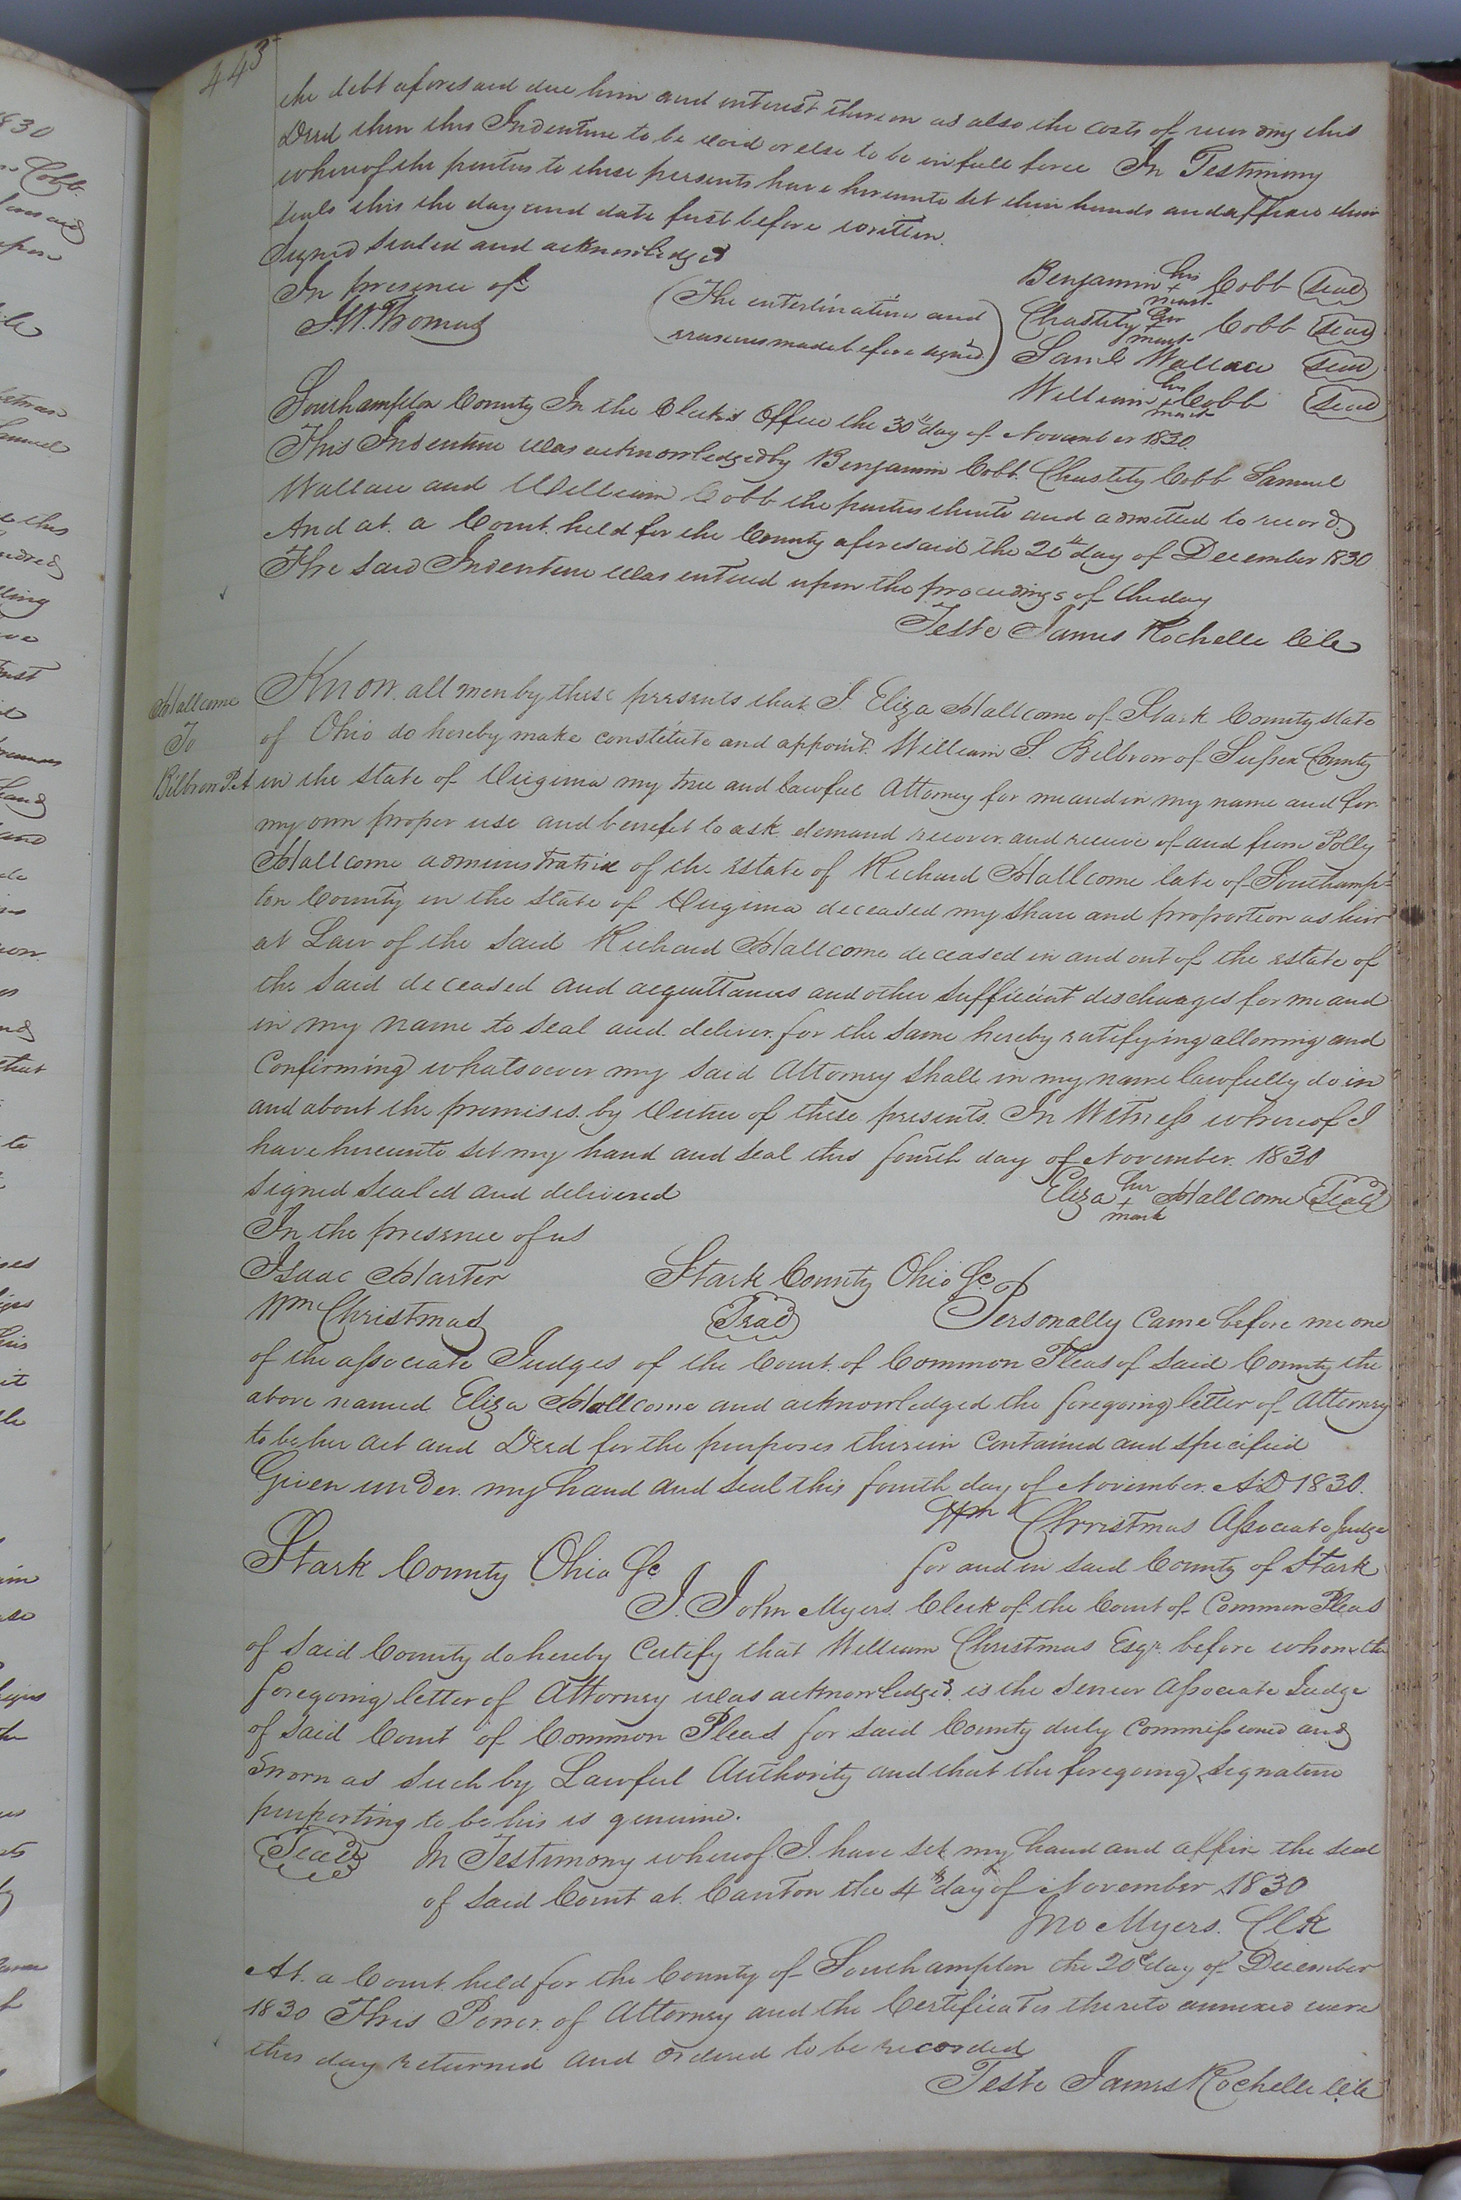 443
the debt aforesaid due him and interest thereon as also the costs of recording this
Deed then this Indenture to be void or else to be in full force In Testimony
whereof the parties to these presents have hereunto set their hands and affixed their
seals this the day and date first before written.
Signed Sealed and acknowledged
In presence of
J.W. Thomas
(The interlination and
erasures made before signed)
Benjamin his + mark Cobb (Seal)
Chastity her + mark Cobb (Seal)
Saml Wallace (Seal)
William his + mark Cobb (Seal)
Southampton County In the Clerk's Office the 30th day of November 1830.
This Indenture was acknowledged by Benjamin Cobb Chastity Cobb Samuel
Wallace and William Cobb the parties thereto and admitted to record
And at a Court held for the County aforesaid the 20th day of December 1830
The said Indenture was entered upon the proceedings of the day
Teste James Rochelle Clk
Hallcome
To
Bilbron P.A
Know all men by these presents that I Eliza Hallcome of Stark County state
of Ohio do hereby make constitute and appoint William S. Bilbrow of Sussex County
in the state of Virginia my true and lawful Attorney for me and in my name and for
my own proper use and benefit to ask demand recover and receive of and from Polly
Hallcome administratrix of the estate of Richard Hallcome late of Southamp=
ton County in the state of Virginia deceased my share and proportion as heir
at Law of the said Richard Hallcome deceased in and out of the estate of
the said deceased and acquittances and other sufficient discharges for me and
in my name to seal and deliver for the same hereby ratifying allowing and
Confirming whatsoever my said Attorney shall in my name lawfully do in
and about the premises by virtue of these presents. In Witness whereof I
have hereunto set my hand and seal this fourth day of November 1830
Signed Sealed and delivered
Eliza her + mark Hallcome (Seal)
In the presence of us
Isaac Harter
Wm Christmas
Stark County Ohio Sc
(Seal) Personally came before me one
of the associate Judges of the Court of Common Pleas of said County the
above named Eliza Hallcome and acknowledged the foregoing letter of Attorney
to be her act and Deed for the purposes therein contained and specified
Given under my hand and seal this fourth day of November A.D 1830.
Wm Christmas Associate Judge
for and in said County of Stark
Stark County Ohio Sc
I. John Myers Clerk of the Court of Common Pleas
of said County do hereby Certify that William Christmas Esqr before whom the
foregoing letter of Attorney was acknowledged is the senior Associate Judge
of said Court of Common Pleas for said County duly Commissioned and
Sworn as such by Lawful Authority and that the foregoing signature
purporting to be his is genuine.
(Seal) In Testimony whereof I have set my hand and affix the seal
of said Court at Canton the 4th day of November 1830
Jno Myers. Clk
At a Court held for the County of Southampton the 20th day of December
1830 This Power of Attorney and the Certificates thereto annexed were
this day returned and ordered to be recorded
Teste James Rochelle Clk